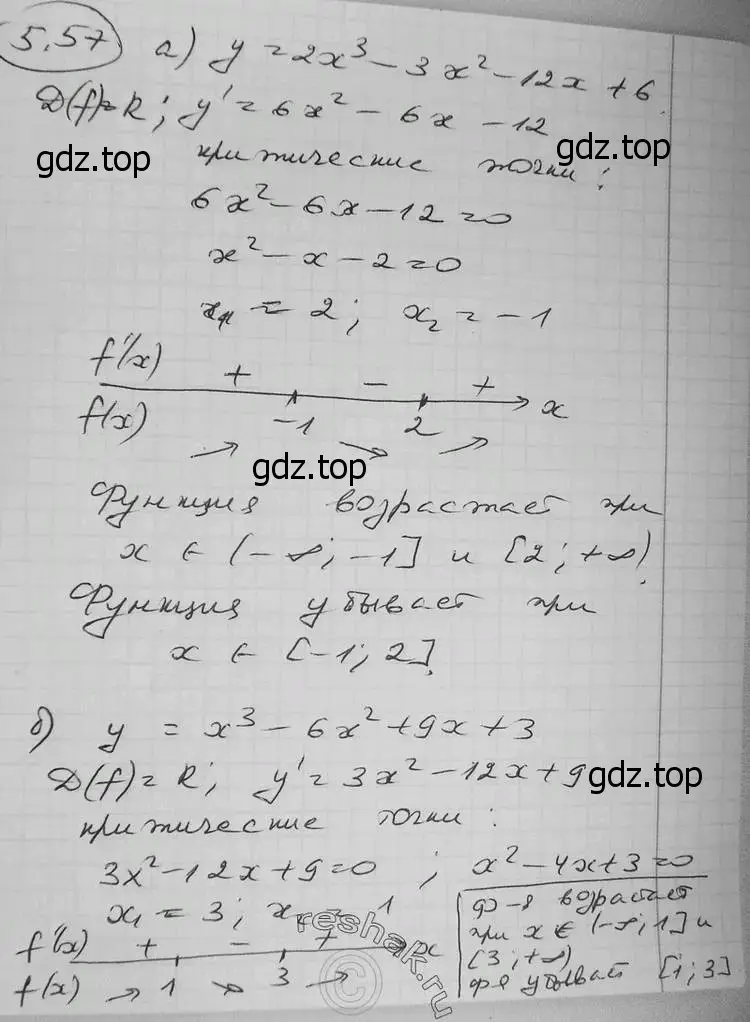 5.57 а) y = 2x³ - 3x² - 12x + 6
D(f)=R; y' = 6x² - 6x - 12
gdz.top gdz.top
критические точки:
6x² - 6x - 12 = 0
x² - x - 2 = 0
x₁ = 2; x₂ = -1
f'(x) + - +
x
f(x) -1 2
gdz.top
Функция возрастает при
x ∈ (-∞; -1] и [2; +∞)
Функция убывает при
x ∈ [-1; 2].
б) y = x³ - 6x² + 9x + 3
D(f)=R; y' = 3x² - 12x + 9
gdz.top
критические точки:
3x² - 12x + 9 = 0; x² - 4x + 3 = 0
x₁ = 3; x₂ = 1
f'(x) + - + x
f(x) → 1 → 3 →
ф-я возрастает
при x ∈ (-∞; 1] и
[3; +∞)
ф-я убывает [1; 3]
reshak.ru
©